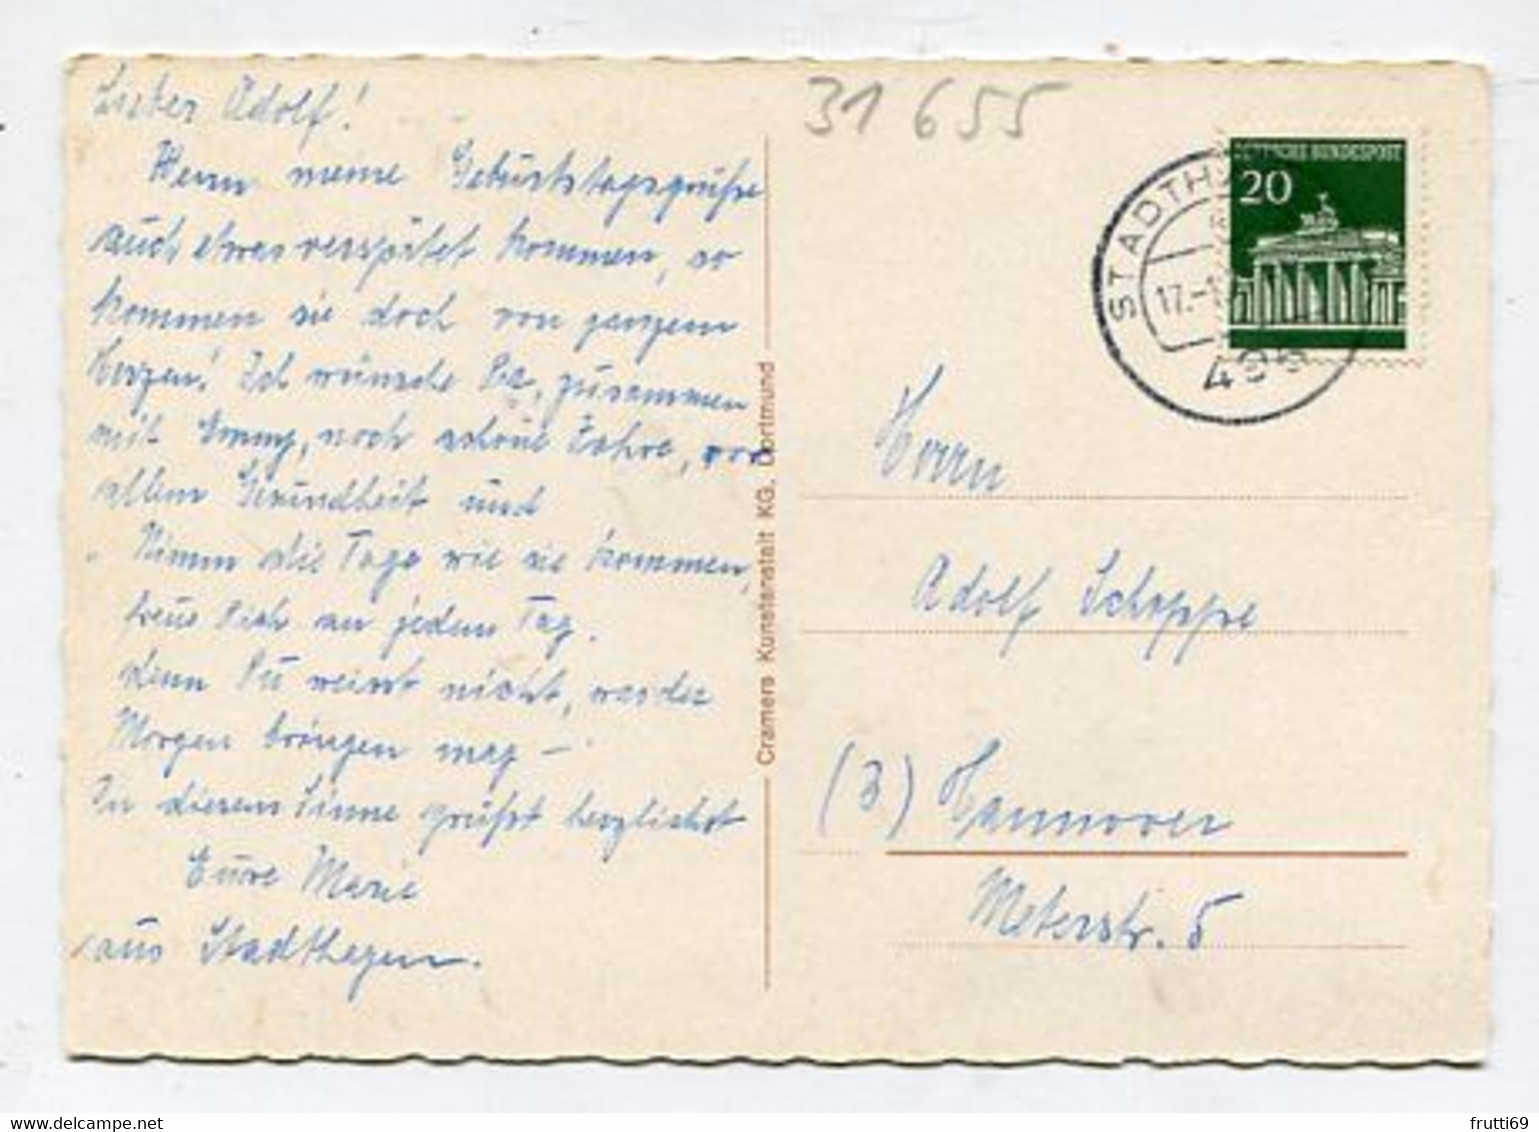 Lieber Adolf!
Wenn meine Geburtstagsgrüße
auch etwas verspätet kommen, so
kommen sie doch von ganzem
Herzen! Ich wünsche Dir, zusammen
mit Emmy, noch schöne Jahre, vor
allem Gesundheit und
Nimm die Tage wie sie kommen,
freue Dich an jedem Tag.
denn Du weisst nicht, was der
Morgen bringen mag –
In diesem Sinne grüßt herzlichst
Eure Marie
aus Stadthagen.
Cramers Kunstanstalt KG. Dortmund
31 655
DEUTSCHE BUNDESPOST
20
STADTH
17.-1
Herrn
Adolf Schoppe
(3) Hannover
Meterstr. 5
www.delcampe.net
frutti69